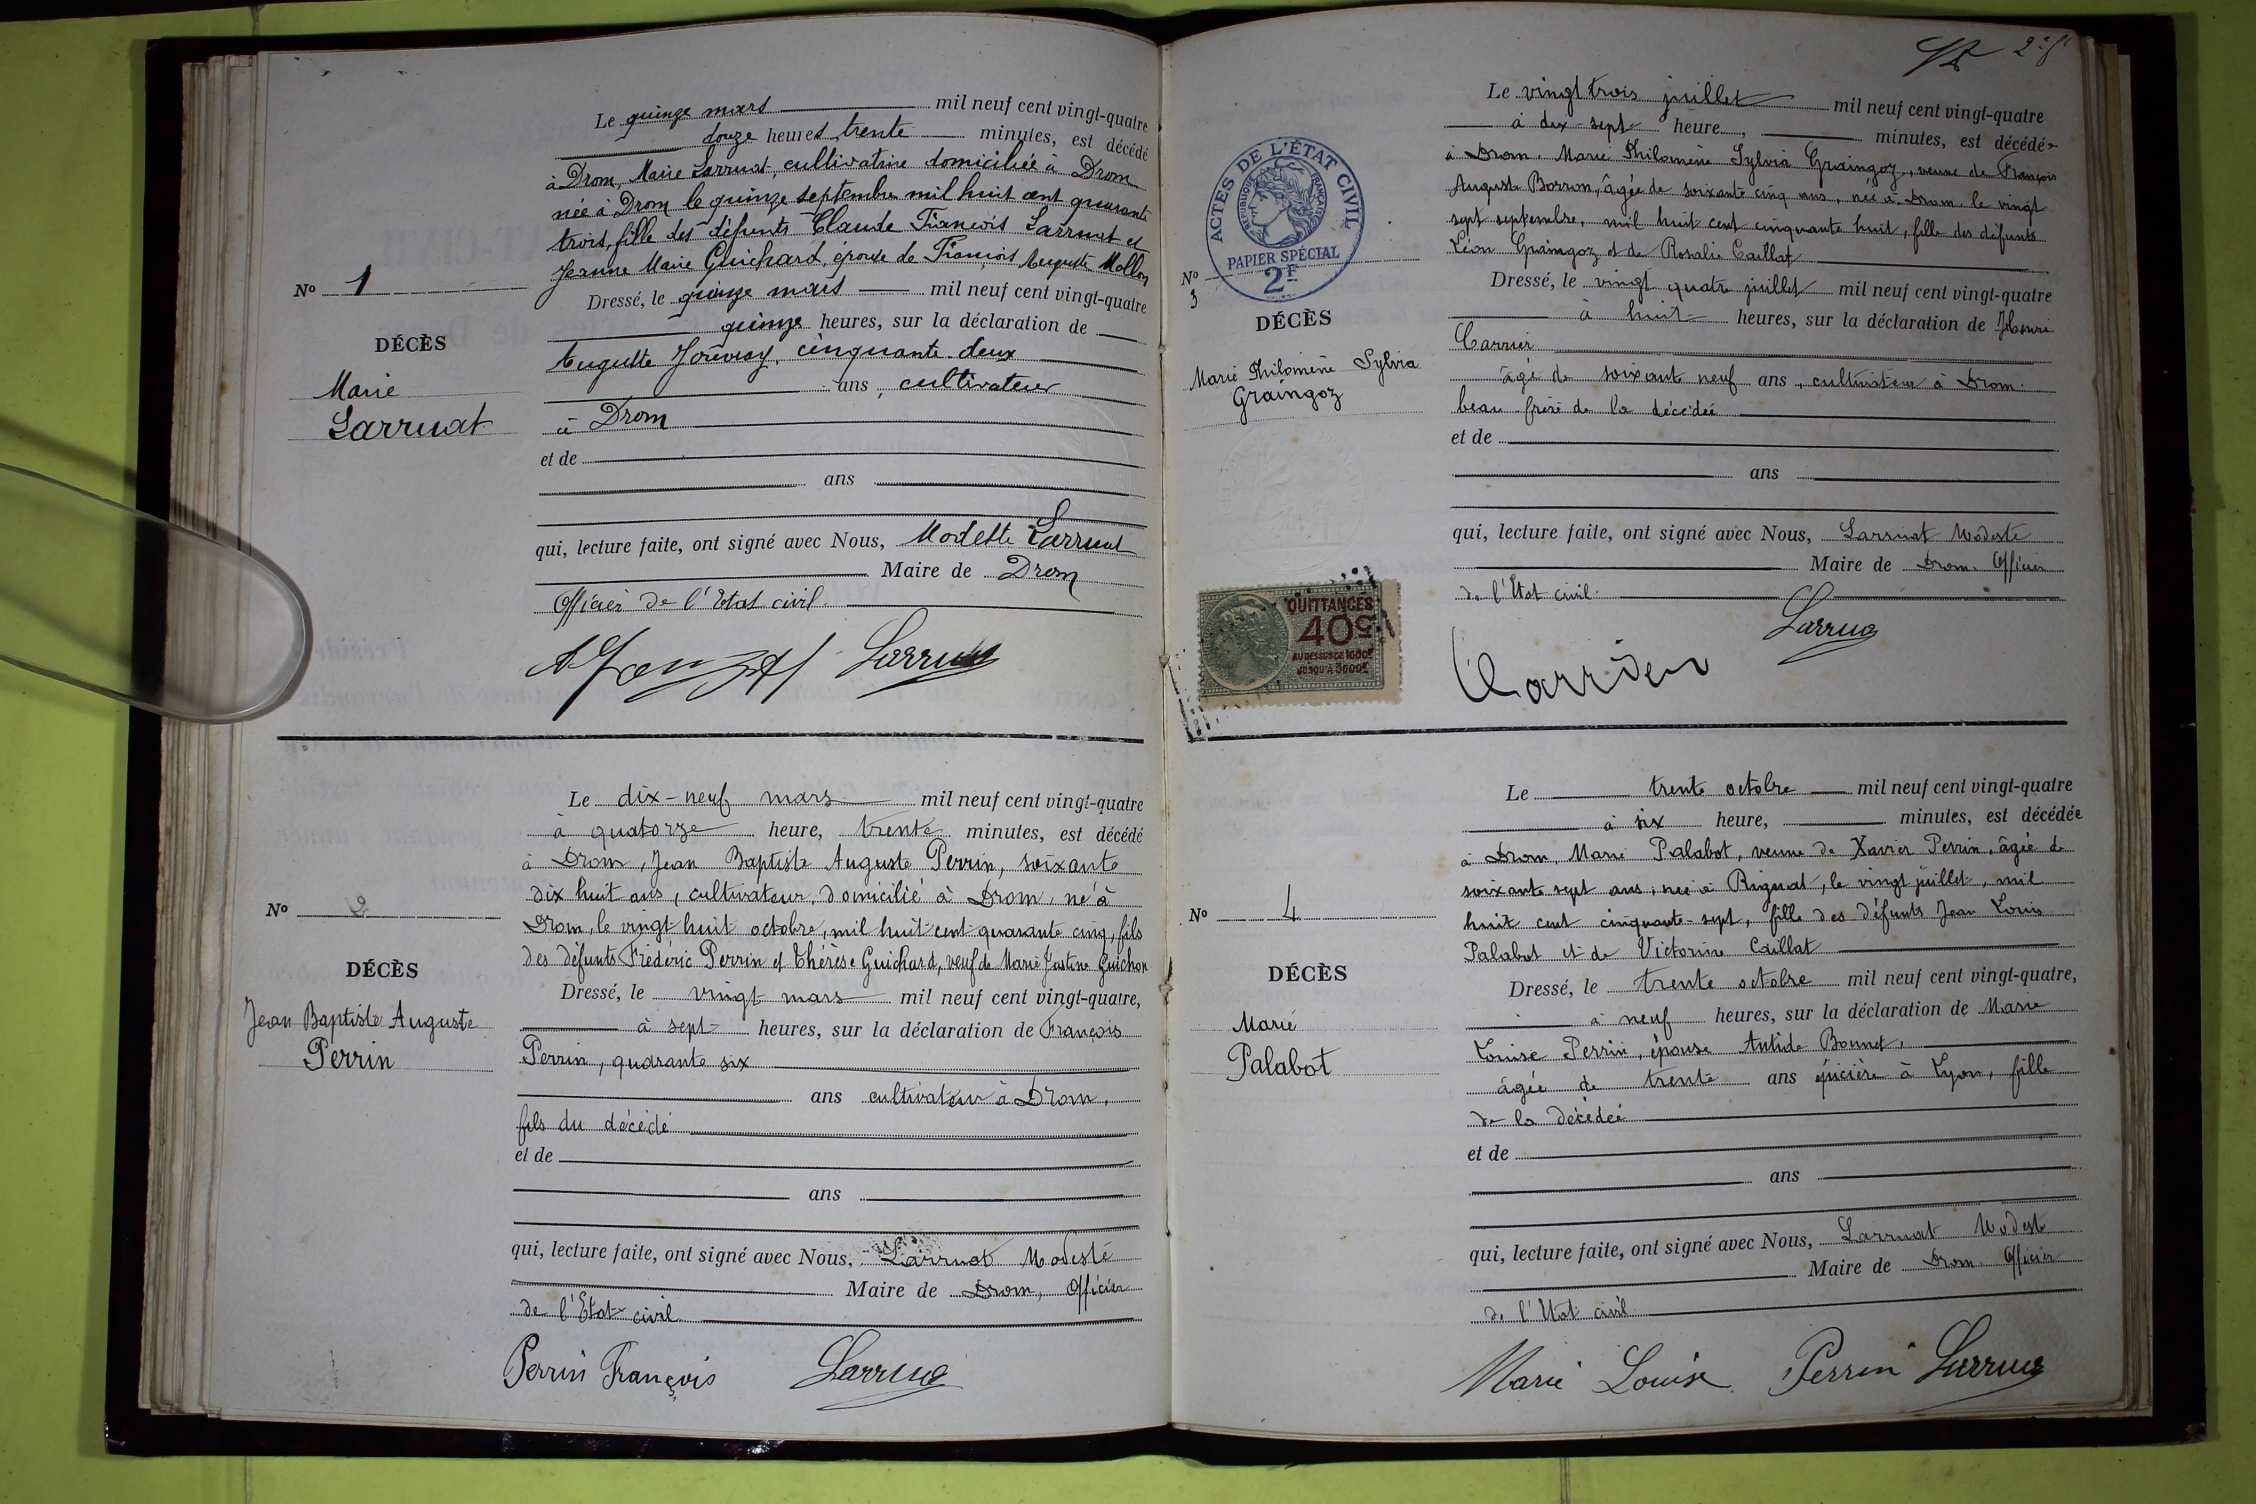 Le quinze mars mil neuf cent vingt-quatre
douze heures trente minutes, est décédé
à Drom, Marie Larruat, cultivatrice domiciliée à Drom
née à Drom le quinze septembre mil huit cent quarante
trois, fille des défunts Claude François Larruat et
Jeanne Marie Guichard, épouse de François Auguste Mollon
No 1
Dressé, le quinze mars mil neuf cent vingt-quatre
quinze heures, sur la déclaration de
DÉCÈS
Auguste cinquante-deux
Marie
ans, cultivateur
Larruat
à Drom
et de
ans
qui, lecture faite, ont signé avec Nous, Modeste Larruat
Maire de Drom
Officier de l'Etat civil
Larruat
Le dix-neuf mars mil neuf cent vingt-quatre
à quatorze heure, trente minutes, est décédé
à Drom, Jean Baptiste Auguste Perrin, soixante
dix huit ans, cultivateur, domicilié à Drom, né à
No 2
Drom, le vingt huit octobre, mil huit cent quarante cinq, fils
des défunts Frédéric Perrin et Thérèse Guichard, veuf de Marie Justine Guichon
DÉCÈS
Dressé, le vingt mars mil neuf cent vingt-quatre,
Jean Baptiste Auguste
à sept heures, sur la déclaration de François
Perrin
Perrin, quarante six
ans cultivateur à Drom,
fils du décédé
et de
ans
qui, lecture faite, ont signé avec Nous, Larruat Modeste
Maire de Drom, Officier
de l'Etat civil
Perrin François Larruat
2e f
Le vingt trois juillet mil neuf cent vingt-quatre
à dix-sept heure, minutes, est décédée
à Drom, Marie Philomène Sylvia Graingoz, veuve de François
Auguste Borron, âgée de soixante cinq ans, née à Drom le vingt
sept septembre, mil huit cent cinquante huit, fille des défunts
Léon Graingoz et de Rosalie Caillat
ACTES DE L'ÉTAT CIVIL
RÉPUBLIQUE FRANÇAISE
PAPIER SPÉCIAL
2F
No 3
Dressé, le vingt quatre juillet mil neuf cent vingt-quatre
à huit heures, sur la déclaration de Henri
DÉCÈS
Carrier
Marie Philomène Sylvia
Graingoz
âgé de soixant neuf ans, cultivateur à Drom.
beau frère de la décédée
et de
ans
qui, lecture faite, ont signé avec Nous, Larruat Modeste
Maire de Drom. Officier
de l'Etat civil.
QUITTANCES
40c
AU DESSUS DE 1000F
JUSQU'À 3000F
Larruat
Carrier
Le trente octobre mil neuf cent vingt-quatre
à six heure, minutes, est décédée
à Drom, Marie Palabot, veuve de Xavier Perrin, âgée de
soixante sept ans, née à Rignat, le vingt juillet, mil
No 4
huit cent cinquante-sept, fille des défunts Jean Louis
Palabot et de Victorine Caillat
DÉCÈS
Dressé, le trente octobre mil neuf cent vingt-quatre,
Marie
à neuf heures, sur la déclaration de Marie
Palabot
Louise Perrin, épouse Antide Bonnet,
âgée de trente ans épicière à Lyon, fille
de la décédée
et de
ans
qui, lecture faite, ont signé avec Nous, Larruat Modest
Maire de Drom. Officier
de l'Etat civil
Marie Louise Perrin Larruat